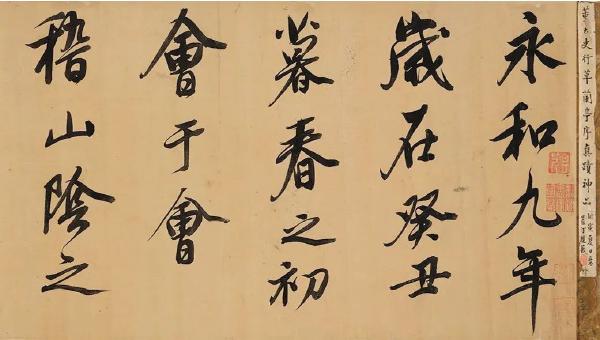 董太史行草蘭亭序真蹟神品
永和九年
歲在癸丑
暮春之初
會于會
稽山陰之